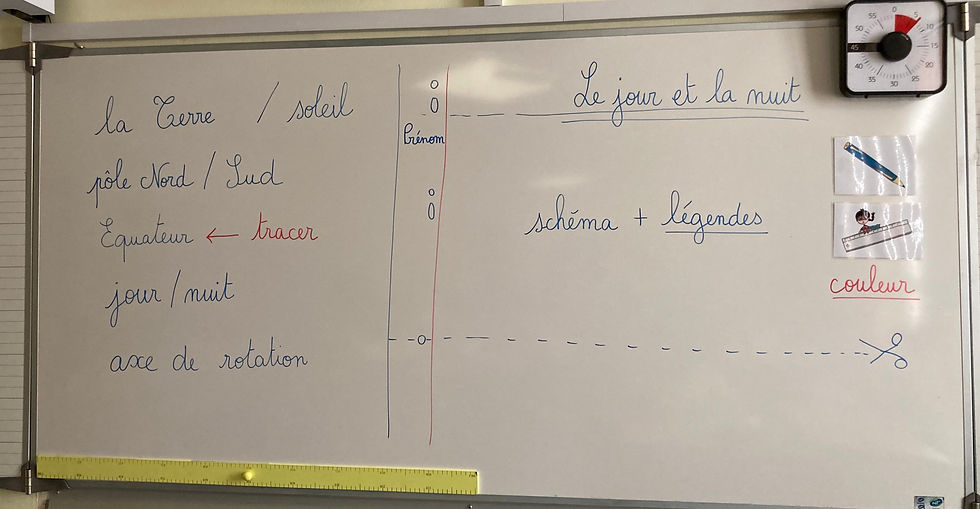 la Terre / soleil
pôle Nord / Sud
Équateur ← tracer
jour / nuit
axe de rotation
Prénom
Le jour et la nuit
schéma + légendes
couleur
0
5
10
15
20
25
30
35
40
45
50
55